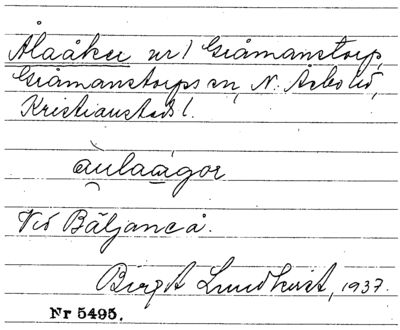 Ålaåker nr 1 Gråmanstorp,
Gråmanstorps sn, N. Åsbo hd,
Kristianstads l.
aulaågor
Vid Bäljaneå.
Birgit Lundkvist, 1937.
Nr 5495.